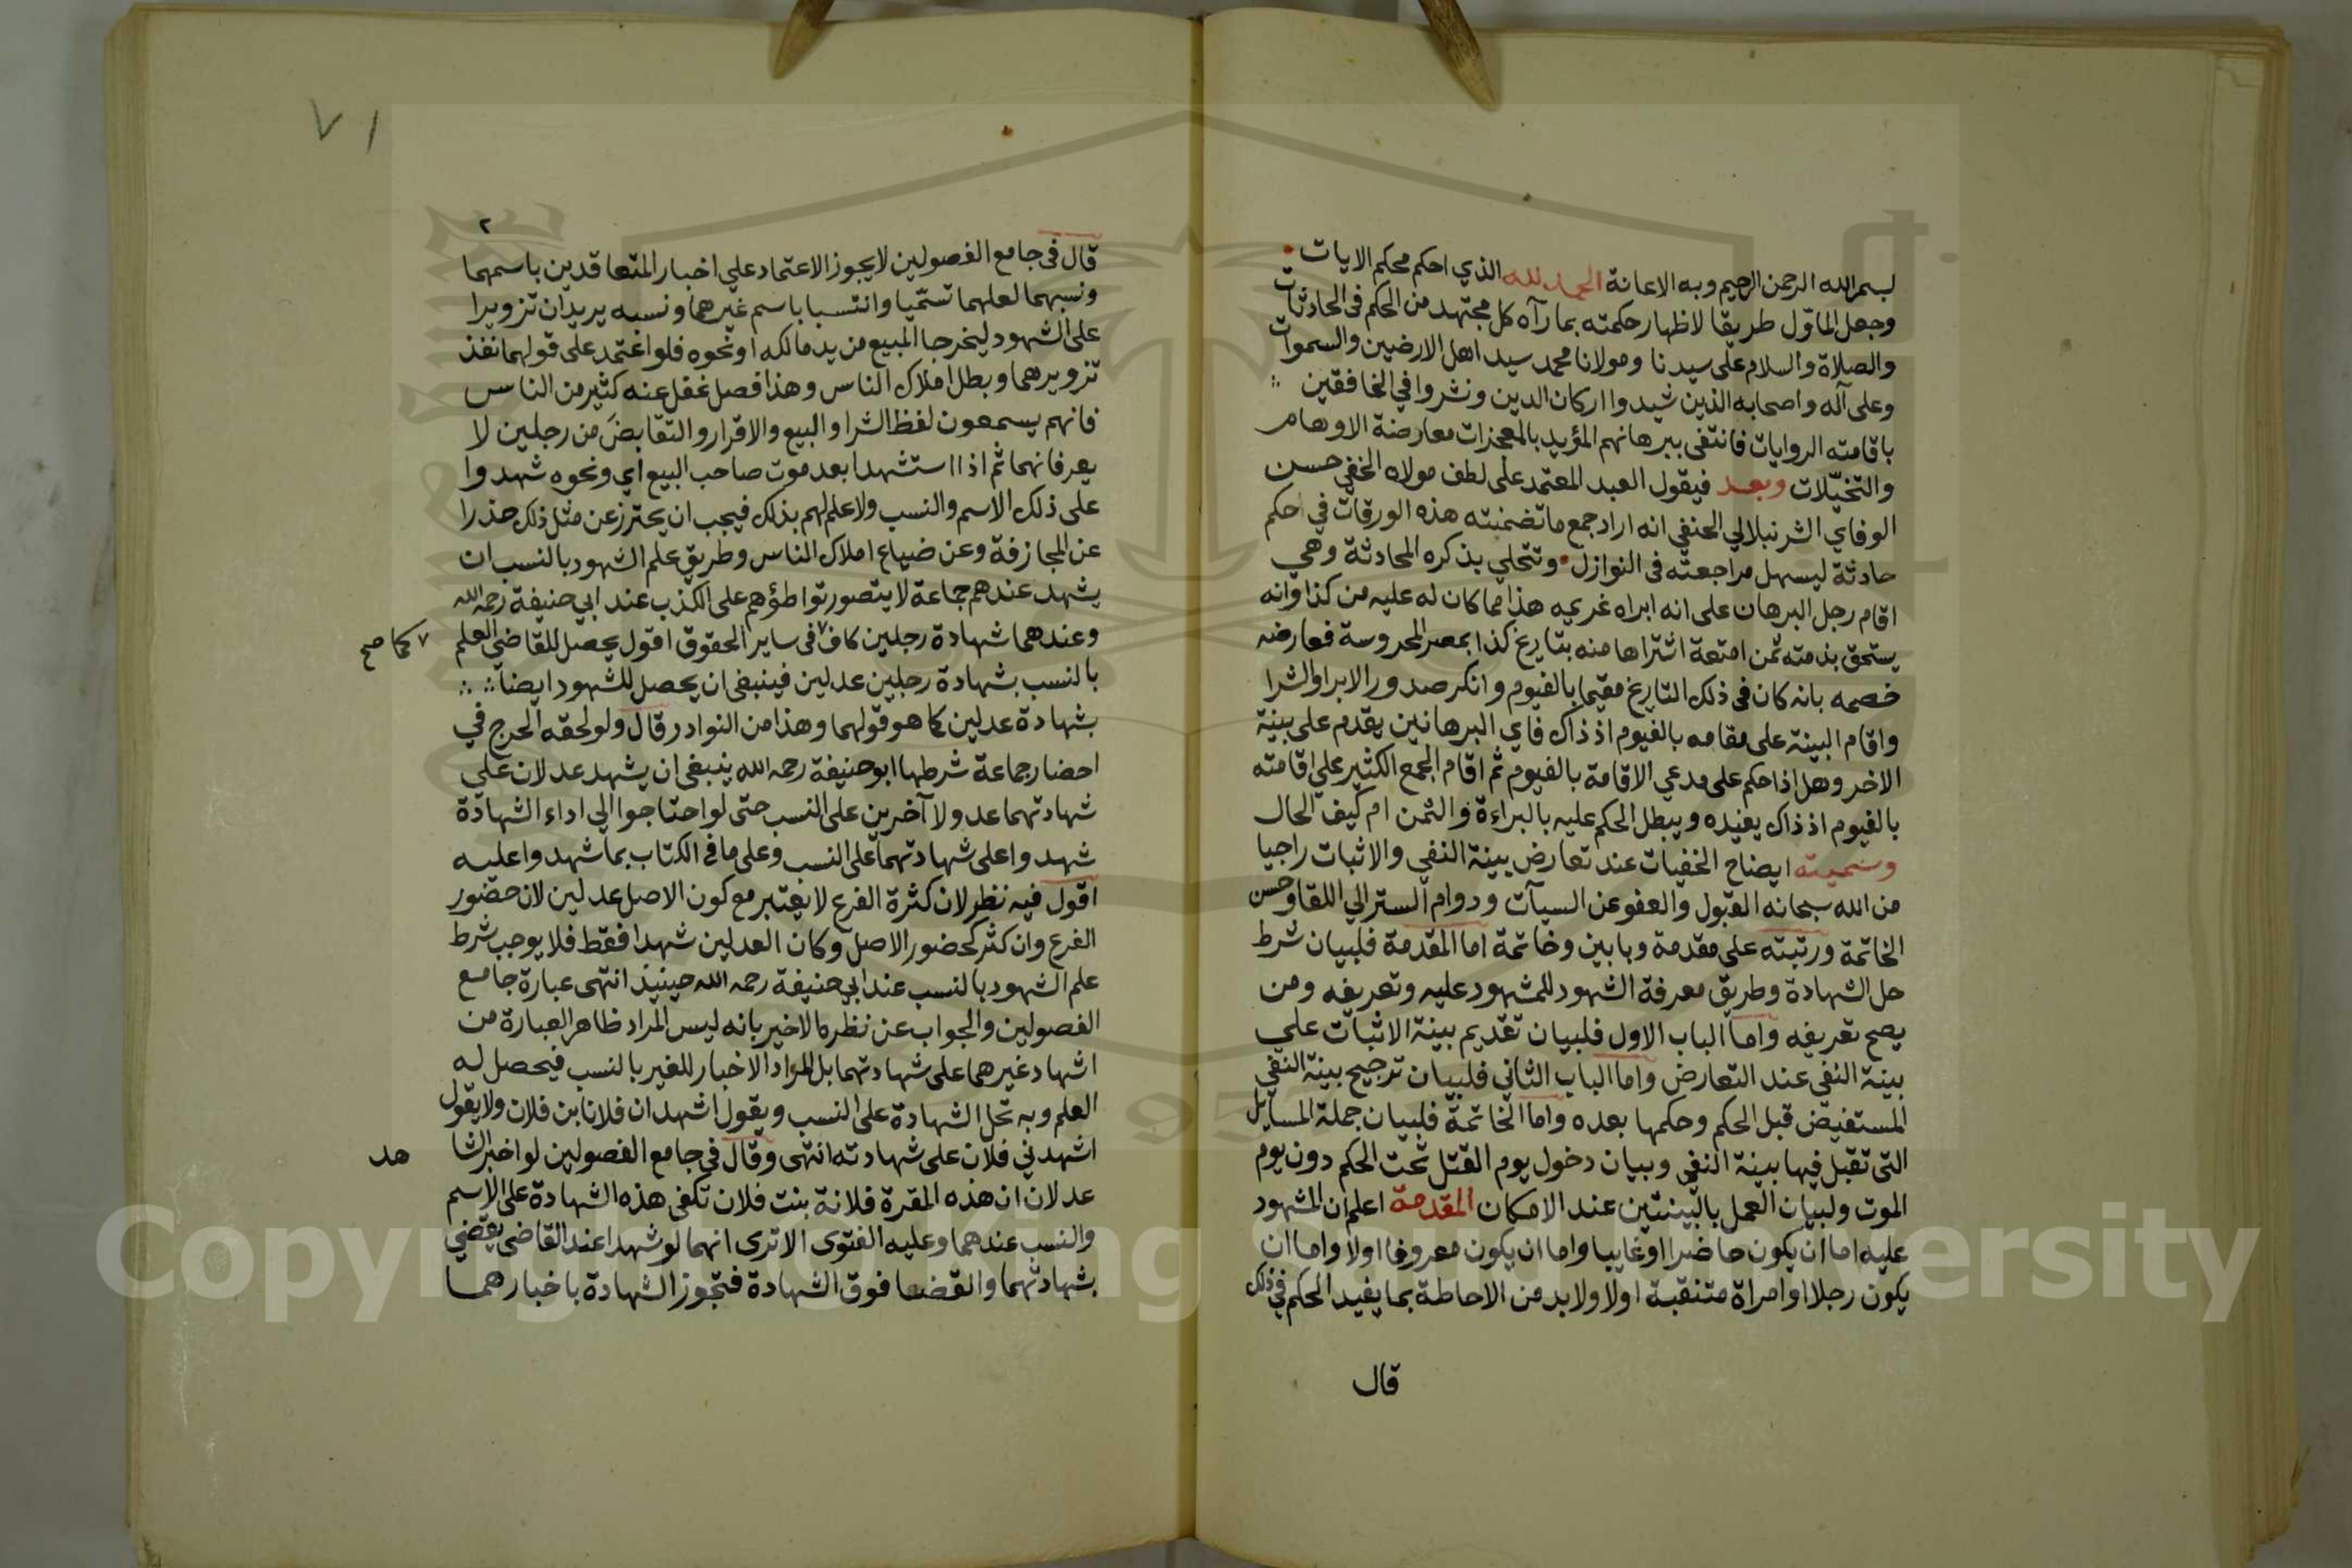 بسم الله الرحمن الرحيم وبه الاعانة الحمد لله الذي احكم محكم الايات
وجعل الماوّل طريقا لاظهار حكمته بما رآه كل مجتهد من الحكم في الحادثات
والصلاة والسلام على سيدنا ومولانا محمد سيد اهل الارضين والسموات
وعلى آله واصحابه الذين شيدوا اركان الدين ونشروا في الخافقين
باقامته الروايات فانتفى ببرهانهم المؤيد بالمعجزات معارضة الاوهام
والتخيّلات وبعد فيقول العبد المعتمد على لطف مولاه الخفي حسن
الوفاي الشرنبلالي الحنفي انه اراد جمع ما تضمنته هذه الورقات في احكم
حادثة ليسهل مراجعته في النوازل وتتحلي بذكره المحادثة وهي
اقام رجل البرهان على انه ابراه غريمه هذا مما كان له عليه من كذا وانه
يستحق بذمته ثمن امتعة اشتراها منه بتاريخ كذا بمصر المحروسة فعارضه
خصمه بانه كان في ذلك التاريخ مقيما بالفيوم وانكر صدور الابرا والشرا
واقام البينة على مقامه بالفيوم اذ ذاك فاي البرهانين يقدم على بينة
الاخر وهل اذا حكم على مدعي الاقامة بالفيوم ثم اقام الجمع الكثير على اقامته
بالفيوم اذ ذاك يفيده ويبطل الحكم عليه بالبراءة والثمن ام كيف الحال
وسميته ايضاح الخفيات عند تعارض بينة النفي والاثبات راجيا
من الله سبحانه القبول والعفو عن السيآت ودوام الستر الي اللقا وحسن
الخاتمة ورتبته على مقدمة وبابين وخاتمة اما المقدمة فلبيان شرط
حل الشهادة وطريق معرفة الشهود للمشهود عليه وتعريفه ومن
يصح تعريفه واما الباب الاول فلبيان تقديم بينة الاثبات علي
بينة النفي عند التعارض واما الباب الثاني فلبيان ترجيح بينة النفي
المستفيض قبل الحكم وحكمها بعده واما الخاتمة فلبيان جملة المسايل
التي تقبل فيها بينة النفي وبيان دخول يوم القتل تحت الحكم دون يوم
الموت ولبيان العمل بالبينتين عند الامكان المقدمة اعلم ان المشهود
عليه اما ان يكون حاضرا او غايبا واما ان يكون معروفا اولا واما ان
يكون رجلا او امراة متنقبة اولا ولا بد من الاحاطة بما يفيد الحكم في ذلك
قال
٧١
٢
قال في جامع الفصولين لا يجوز الاعتماد علي اخبار المتعاقدين باسمهما
ونسبهما لعلهما تسمّيا وانتسبا باسم غيرهما ونسبه يريدان تزويرا
على الشهود ليخرجا المبيع من يد مالكه او نحوه فلو اعتمد على قولهما نفذ
تزويرهما وبطل املاك الناس وهذا فصل غفل عنه كثير من الناس
فانهم يسمعون لفظ الشرا والبيع والاقرار والتقابض من رجلين لا
يعرفانهما ثم اذا استشهدا بعد موت صاحب البيع اي ونحوه شهدوا
على ذلك الاسم والنسب ولا علم لهم بذلك فيجب ان يحترز عن مثل ذلك حذرا
عن المجازفة وعن ضياع املاك الناس وطريق علم الشهود بالنسب ان
يشهد عندهم جماعة لا يتصور تواطؤهم على الكذب عند ابي حنيفة رحمه الله
وعندهما شهادة رجلين كاف ٧ في ساير الحقوق اقول يحصل للقاضي العلم
٧ كما صح
بالنسب بشهادة رجلين عدلين فينبغي ان يحصل للشهود ايضا
بشهادة عدلين كما هو قولهما وهذا من النوادر قال ولو لحقه الحرج في
احضار جماعة شرطها ابو حنيفة رحمه الله ينبغي ان يشهد عدلان على
شهادتهما عدولا آخرين على النسب حتى لو احتاجوا الي اداء الشهادة
شهدوا على شهادتهما على النسب وعلى ما في الكتاب بما شهدوا عليه
اقول فيه نظر لان كثرة الفرع لا يعتبر مع كون الاصل عدلين لان حضور
الفرع وان كثر كحضور الاصل وكان العدلين شهدا فقط فلا يوجب شرط
علم الشهود بالنسب عند ابي حنيفة رحمه الله حينيذ انتهى عبارة جامع
الفصولين والجواب عن نظره الاخير بانه ليس المراد ظاهر العبارة من
اشهاد غيرهما على شهادتهما بل المراد الاخبار للغير بالنسب فيحصل له
العلم وبه تحل الشهادة على النسب ويقول اشهد ان فلانا بن فلان ولا يقول
اشهدني فلان على شهادته انتهى وقال في جامع الفصولين لو اخبر الشا
هد
عدلان ان هذه المقرة فلانة بنت فلان تكفي هذه الشهادة على الاسم
والنسب عندهما وعليه الفتوى الا ترى انهما لو شهدا عند القاضي يقضي
بشهادتهما والقضا فوق الشهادة فتجوز الشهادة باخبارهما